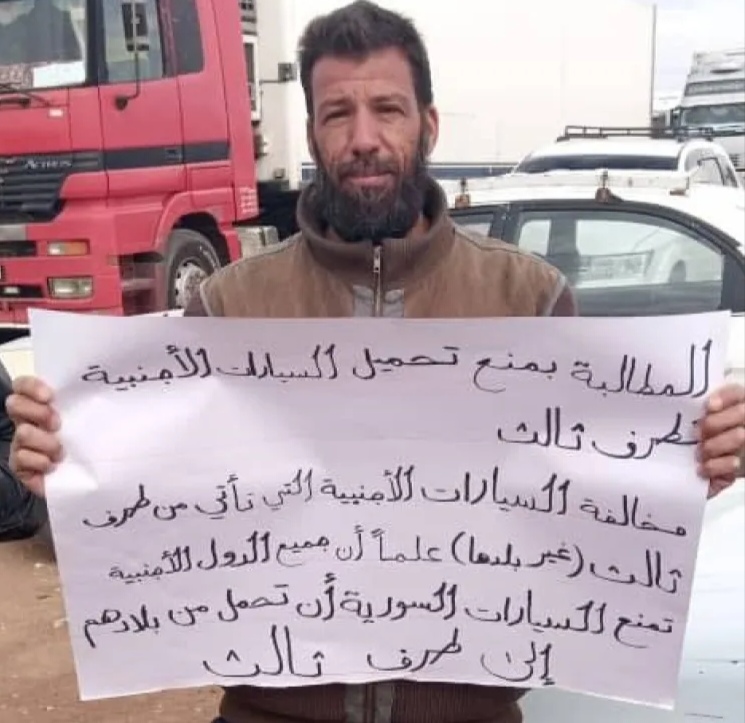 ACTROS
المطالبة بمنع تحميل السيارات الأجنبية
كطرف ثالث
مخالفة السيارات الأجنبية التي تأتي من طرف
ثالث (غير بلدها) علماً أن جميع الدول الأجنبية
تمنع السيارات السورية أن تحمل من بلادهم
إلى طرف ثالث